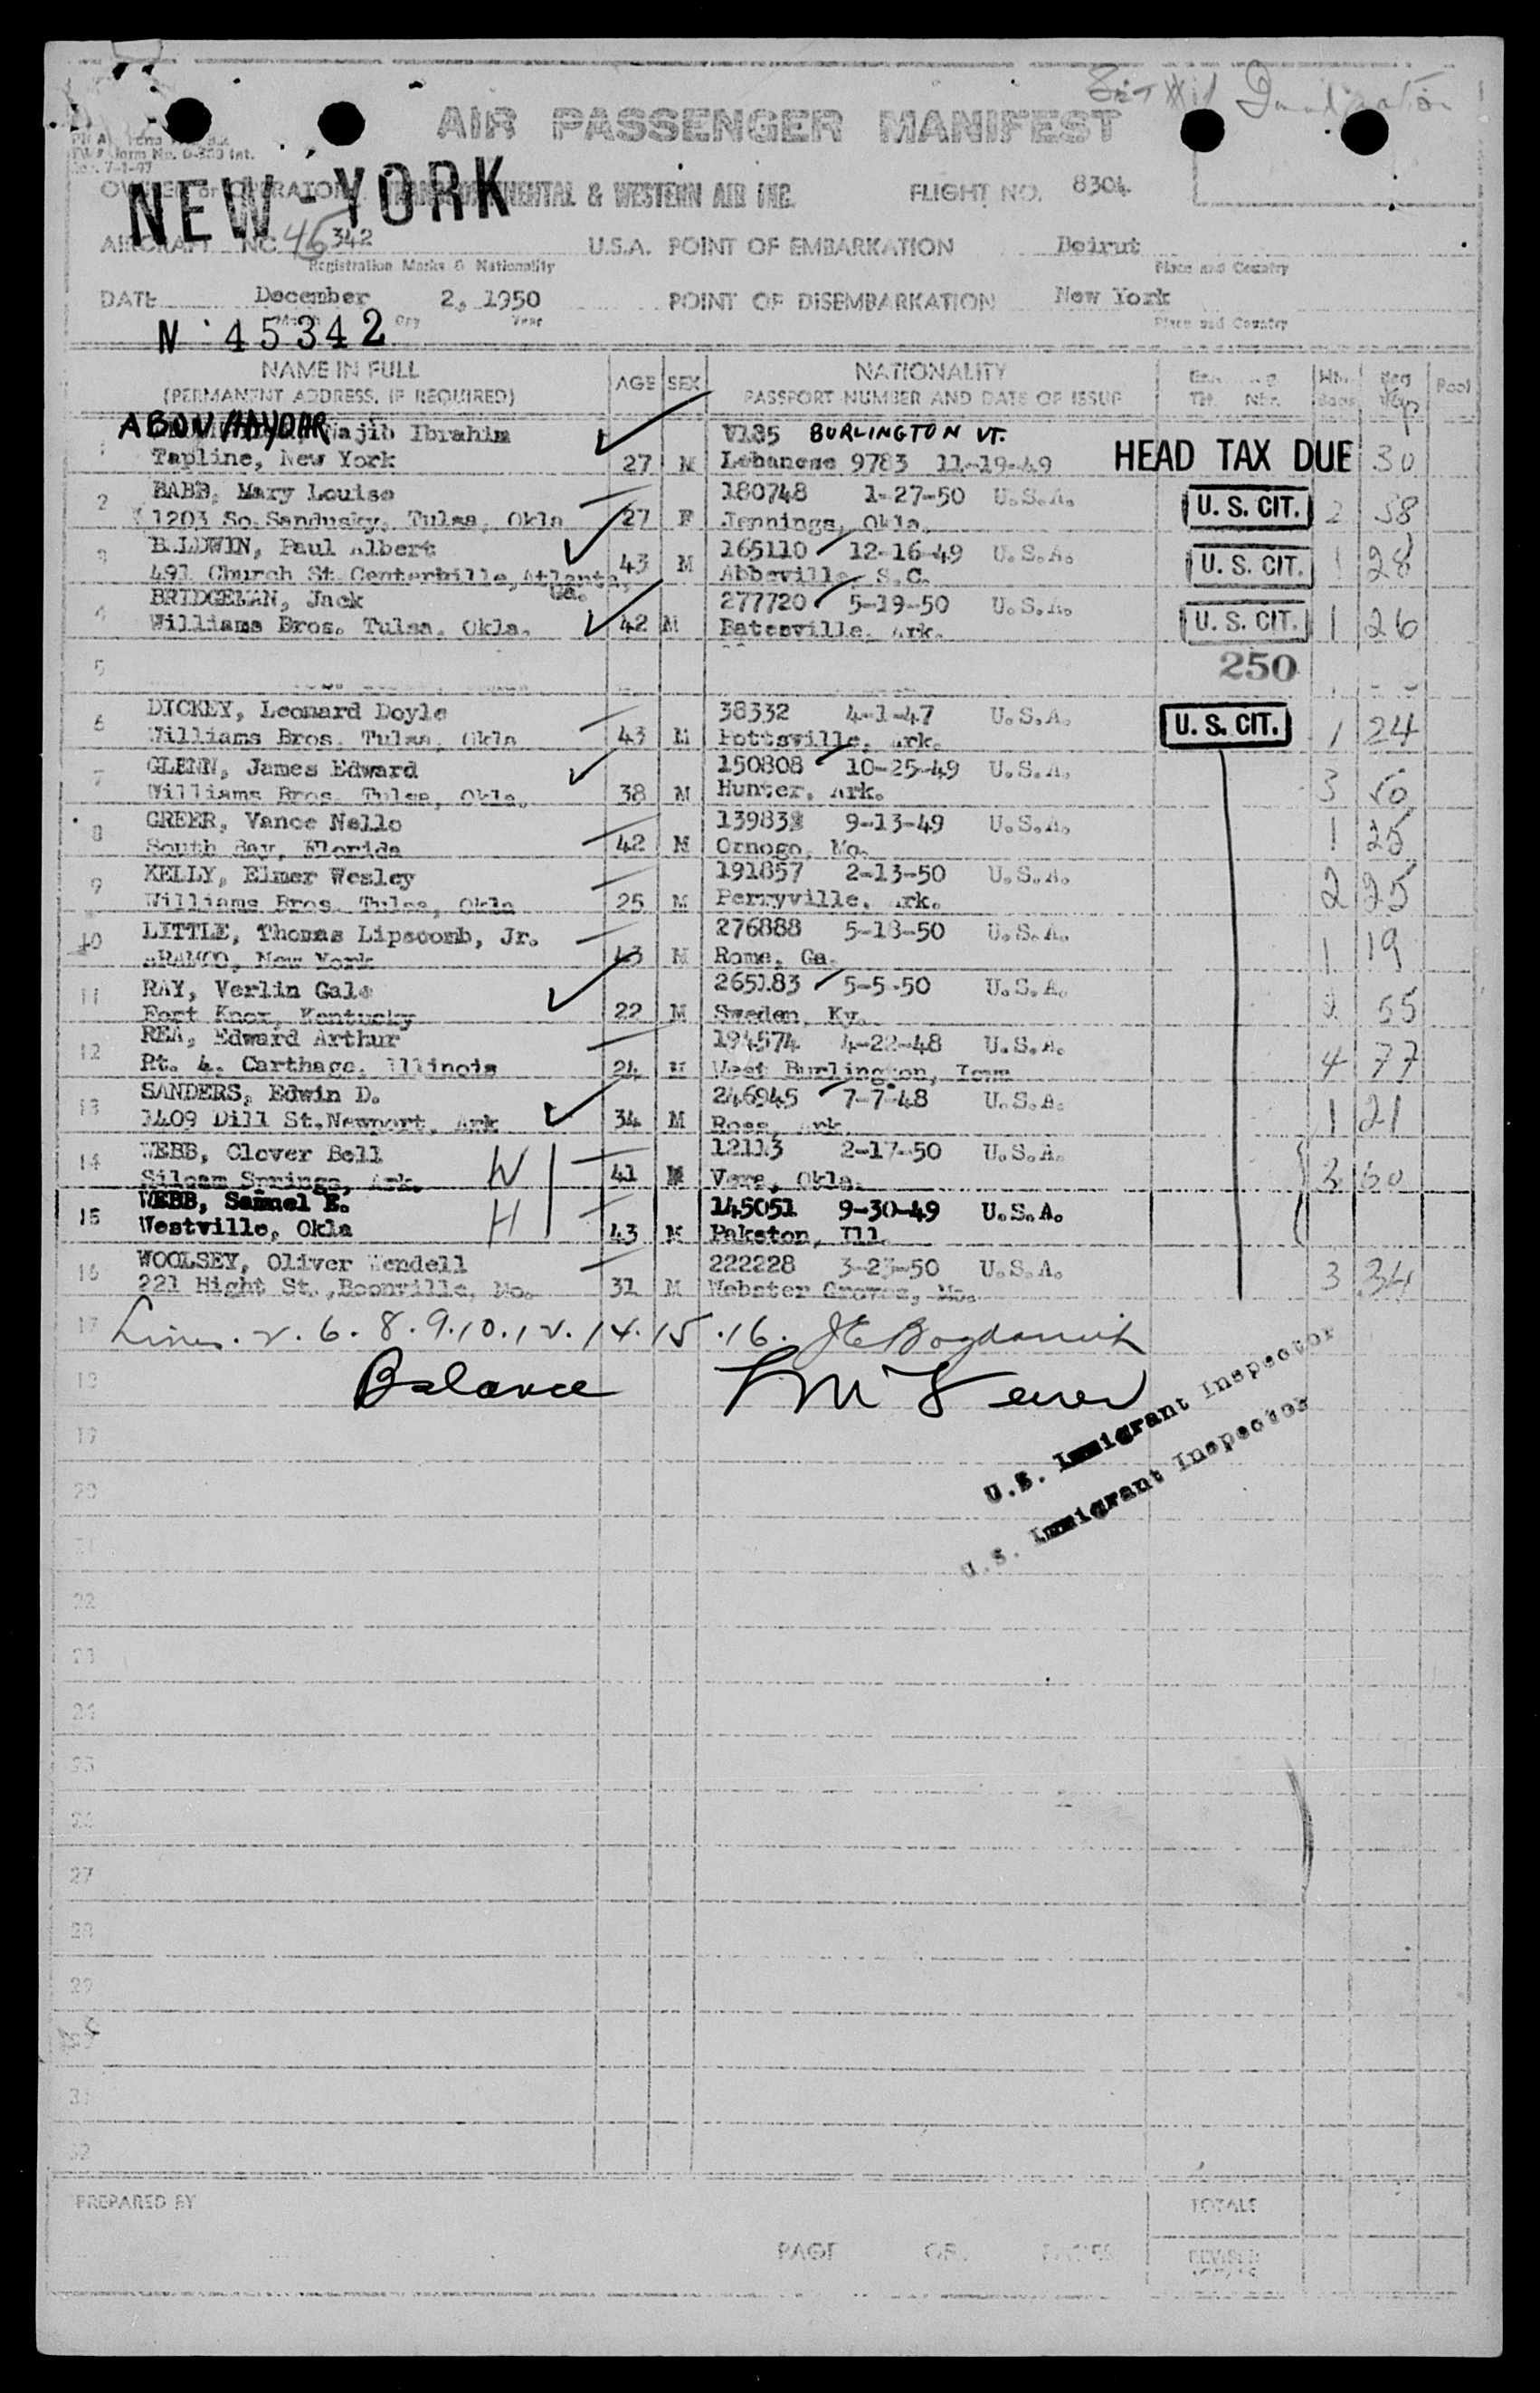 AIR PASSENGER MANIFEST
NEW-YORK
OWNER or OPERATOR TRANSCONTINENTAL & WESTERN AIR INC. FLIGHT NO. 8304
AIRCRAFT NO. 46 342 U.S.A. POINT OF EMBARKATION Beirut
Registration Marks & Nationality Place and Country
DATE December 2, 1950 POINT OF DISEMBARKATION New York
Month Day Year Place and Country
N 45342
NAME IN FULL NATIONALITY
(PERMANENT ADDRESS, IF REQUIRED) AGE SEX PASSPORT NUMBER AND DATE OF ISSUE Pool
ABOU HAYDAR Najib Ibrahim V185 BURLINGTON VT.
1 Tapline, New York 27 M Lebanese 9783 11-19-49 HEAD TAX DUE 30
BABB, Mary Louise 180748 1-27-50 U.S.A.
2 1203 So. Sandusky, Tulsa, Okla 27 F Jennings, Okla. U. S. CIT. 2 38
BALDWIN, Paul Albert 165110 12-16-49 U.S.A.
3 491 Church St. Centerhille, Atlanta, Ga. 43 M Abbeville, S.C. U. S. CIT. 1 28
BRIDGEMAN, Jack 277720 5-19-50 U.S.A.
4 Williams Bros. Tulsa, Okla. 42 M Batesville, Ark. U. S. CIT. 1 26
5 250
DICKEY, Leonard Doyle 38332 4-1-47 U.S.A.
6 Williams Bros. Tulsa, Okla 43 M Pottsville, Ark. U. S. CIT. 1 24
GLENN, James Edward 150808 10-25-49 U.S.A.
7 Williams Bros. Tulsa, Okla. 38 M Hunter, Ark. 3 50
GREER, Vance Nello 13983 9-13-49 U.S.A.
8 South Bay, Florida 42 M Oronogo, Mo. 1 25
KELLY, Elmer Wesley 191857 2-13-50 U.S.A.
9 Williams Bros. Tulsa, Okla 25 M Perryville, Ark. 2 25
LITTLE, Thomas Lipscomb, Jr. 276888 5-18-50 U.S.A.
10 ARAMCO, New York 43 M Rome, Ga. 1 19
RAY, Verlin Gale 265183 5-5-50 U.S.A.
11 Fort Knox, Kentucky 22 M Sweden, Ky. 2 55
REA, Edward Arthur 194574 4-22-48 U.S.A.
12 Rt. 4. Carthage, Illinois 24 M West Burlington, Iowa 4 77
SANDERS, Edwin D. 246945 7-7-48 U.S.A.
13 1409 Dill St. Newport, Ark 34 M Ross, Ark. 1 21
WEBB, Clover Bell W 12113 2-17-50 U.S.A.
14 Siloam Springs, Ark. 41 Vera, Okla. 3 60
WEBB, Samuel E. H 145051 9-30-49 U.S.A.
15 Westville, Okla 43 M Pakston, Ill.
WOOLSEY, Oliver Wendell 222228 3-23-50 U.S.A.
16 221 Hight St., Boonville, Mo. 31 M Webster Groves, Mo. 3 34
17 Lines. 2. 6. 8. 9. 10. 12. 14. 15. 16. J E Bogdanwich
18 Balance
U.S. Immigrant Inspector
19
U.S. Immigrant Inspector
20
21
22
23
24
25
26
27
28
29
31
32
PREPARED BY TOTALS
PAGE OF PAGES